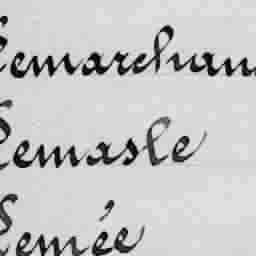 Lemarchan
Lemasle
Lemée